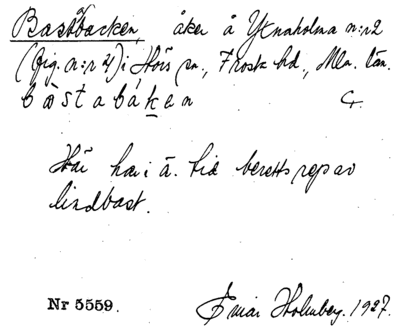 Bastbacken, åker å Yxnaholma n:r 2
(fig. n:r 4) i Hörs sn., Frosta hd., Mlm. län.
b a s t a b á k e n
Här har i ä. tid beretts rep av
lindbast.
Nr 5559. Einar Holmberg. 1927.